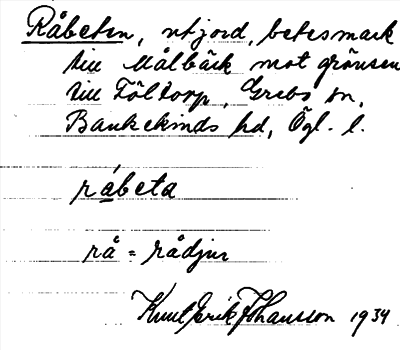 Råbeten, utjord, betesmark
till Målbäck mot gränsen
till Töltorp, Grebo sn,
Bankekinds hd, Ögl. l.
råbeta
rå = rådjur
Knut Erik Johansson 1934